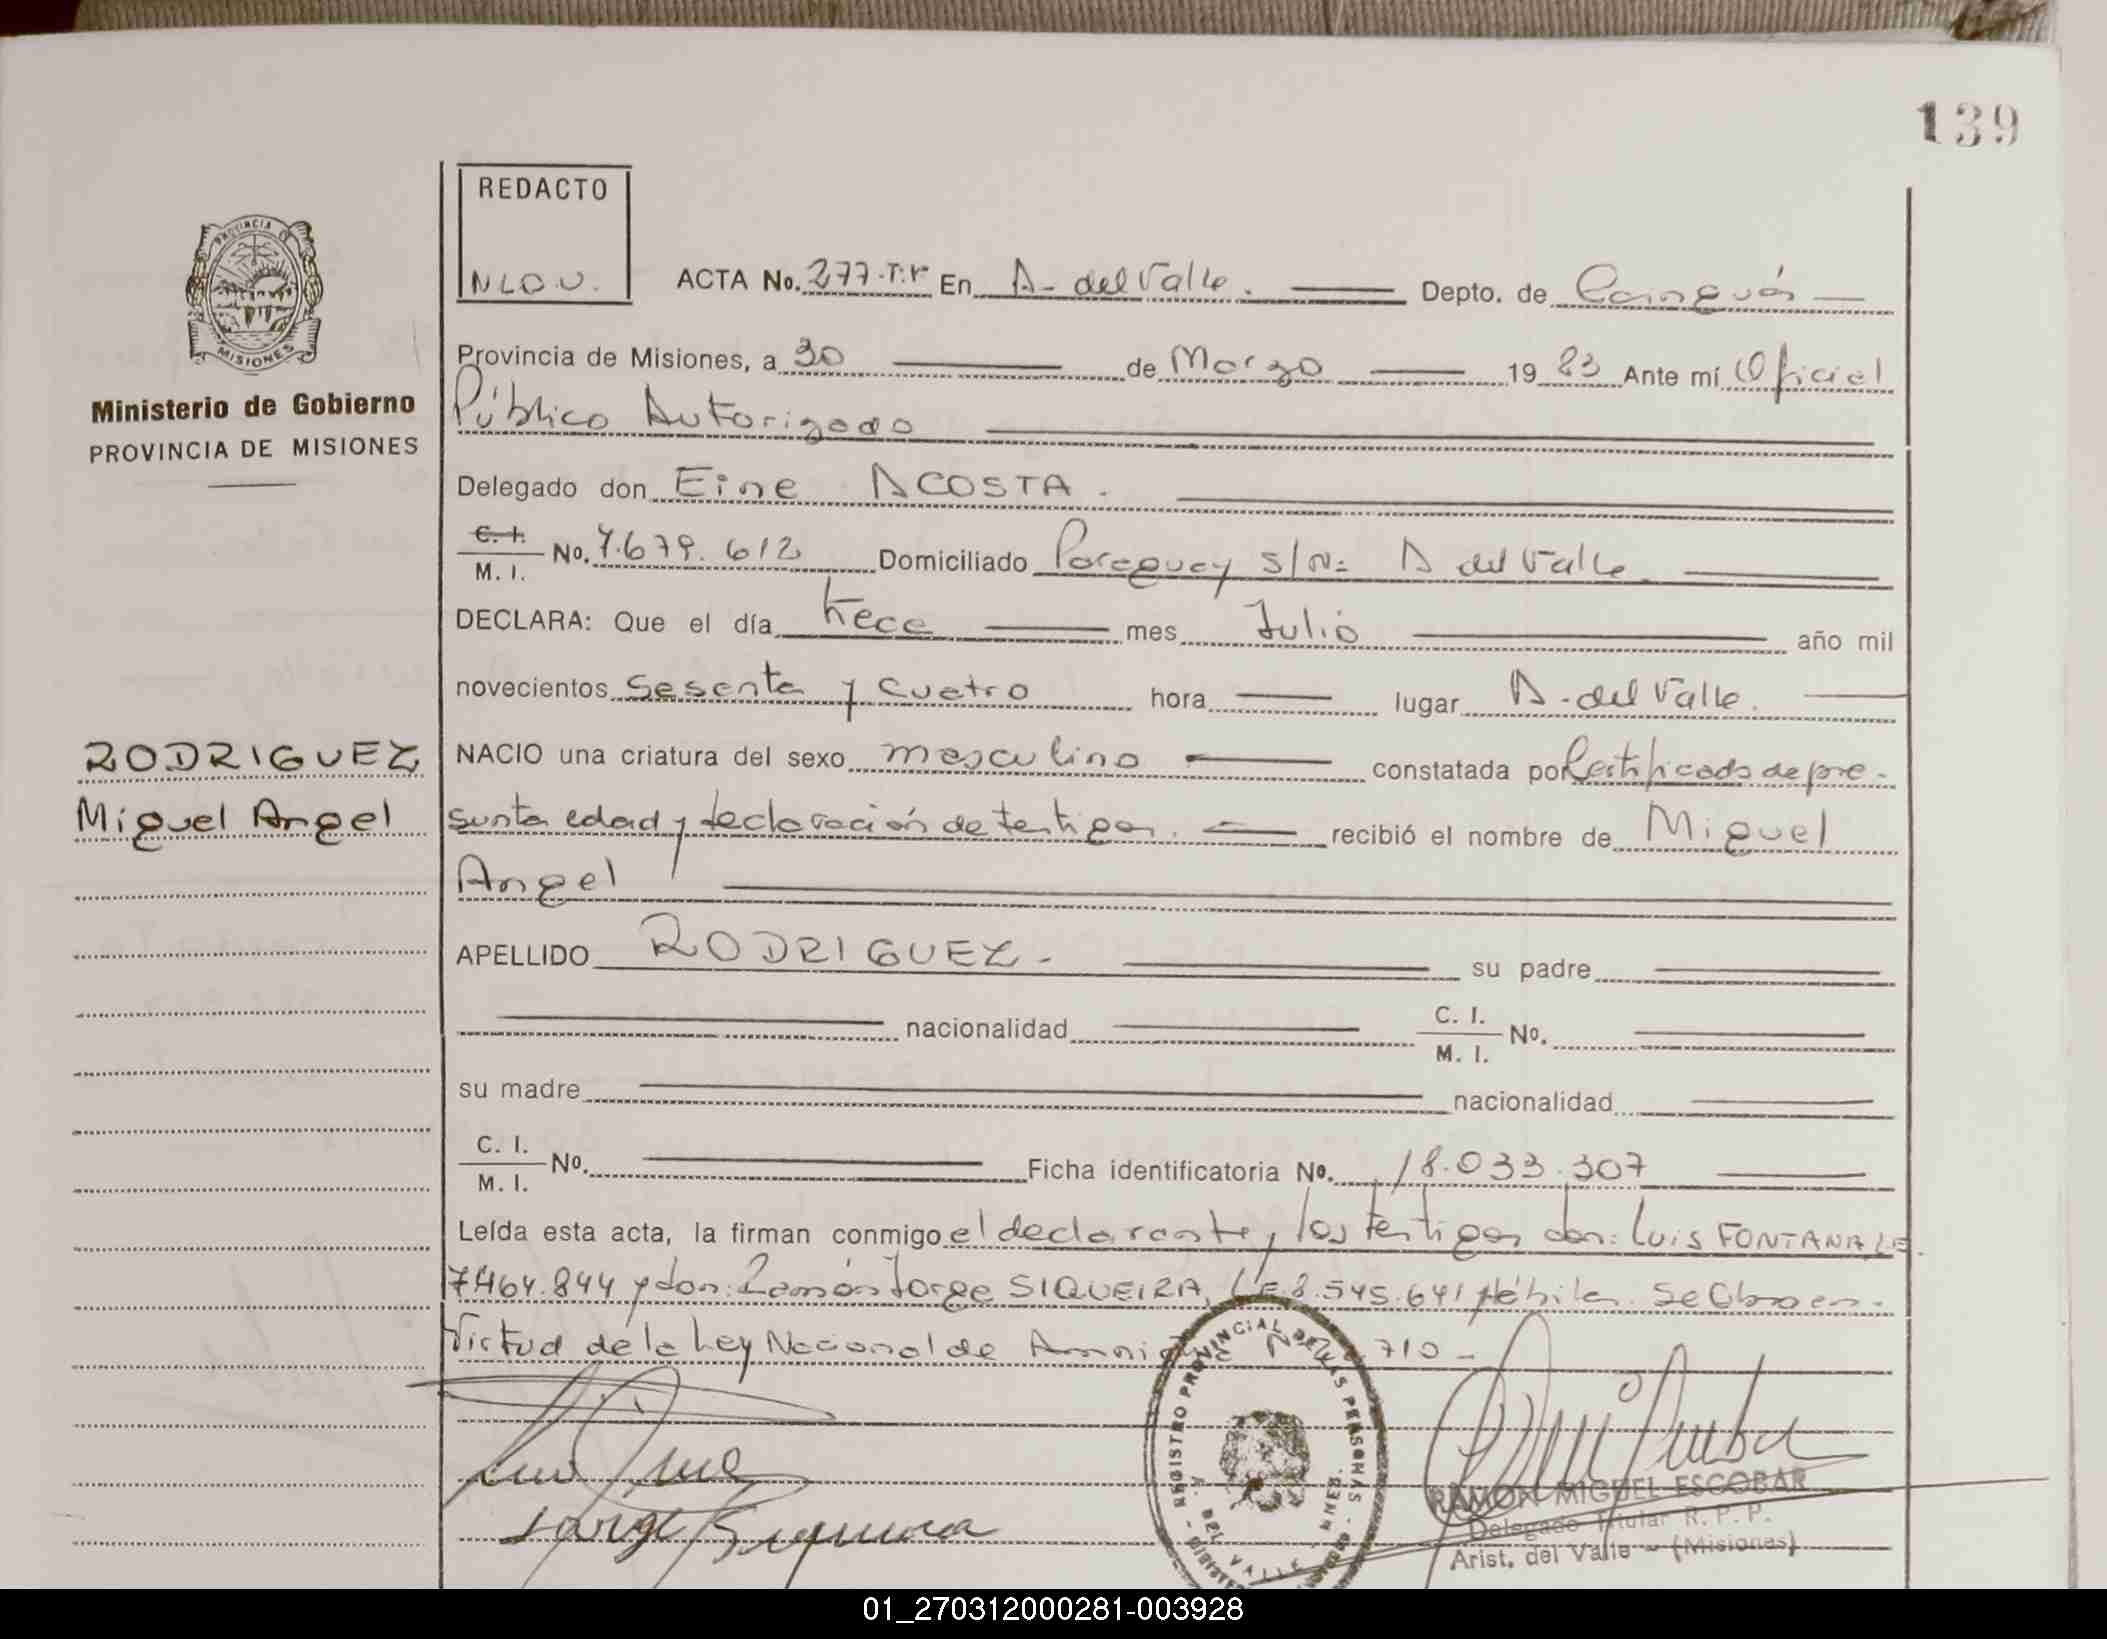 139
REDACTO
N L O U.
PROVINCIA DE MISIONES
Ministerio de Gobierno
PROVINCIA DE MISIONES
RODRIGUEZ
Miguel Angel
ACTA No. 277.T.r En A. del Valle. Depto. de Cainguás
Provincia de Misiones, a 30 de Marzo 1983 Ante mí Oficial
Público Autorizado
Delegado don Eine ACOSTA.
C. I. / M. I. No. 7.679.612 Domiciliado Paraguay s/N= A del Valle.
DECLARA: Que el día trece mes Julio año mil
novecientos sesenta y cuatro hora lugar A. del Valle.
NACIO una criatura del sexo masculino constatada por Certificado de pre-
sunta edad y declaración de testigos. recibió el nombre de Miguel
Angel
APELLIDO RODRIGUEZ. su padre
nacionalidad C. I. / M. I. No.
su madre nacionalidad
C. I. / M. I. No. Ficha identificatoria No. 18.033.307
Leída esta acta, la firman conmigo el declarante, los testigos don: Luis FONTANA, LE.
7.464.844 y don: Ramón Jorge SIQUEIRA, LE 8.545.641 hábiles. Se labra en
Virtud de la Ley Nacional de 710-
REGISTRO PROVINCIAL DE LAS PERSONAS
A. DEL VALLE - MNES.
Jorge Siqueira
RAMON MIGUEL ESCOBAR
Delegado Titular R. P. P.
Arist. del Valle - (Misiones)
01_270312000281-003928